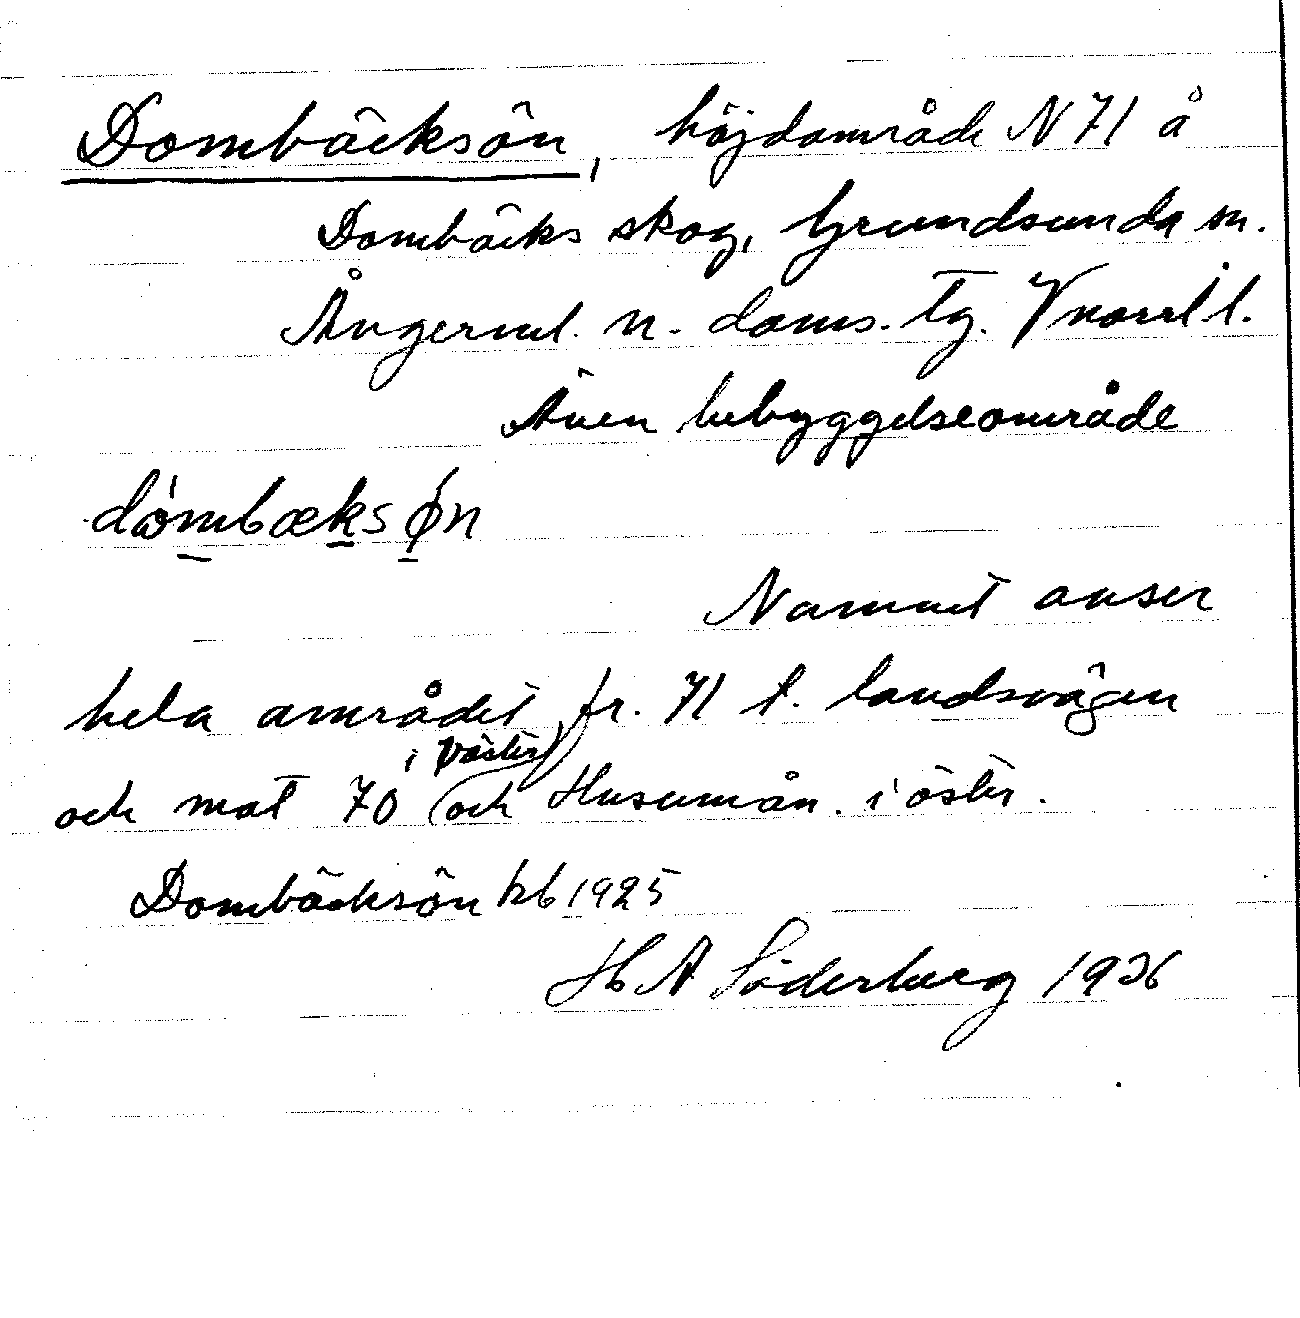 Dombäcksön, höjdområde N 71 å
Dombäcks skog, Grundsunda sn.
Ångerml. n. doms. tg. Vnorrl l.
Även bebyggelseområde
dåmbæksøn
Namnet avser
hela området fr. 71 t. landsvägen
och mot 70 i väster och Husumån. i öster.
Dombäcksön kb 1925
H A Söderberg 1926